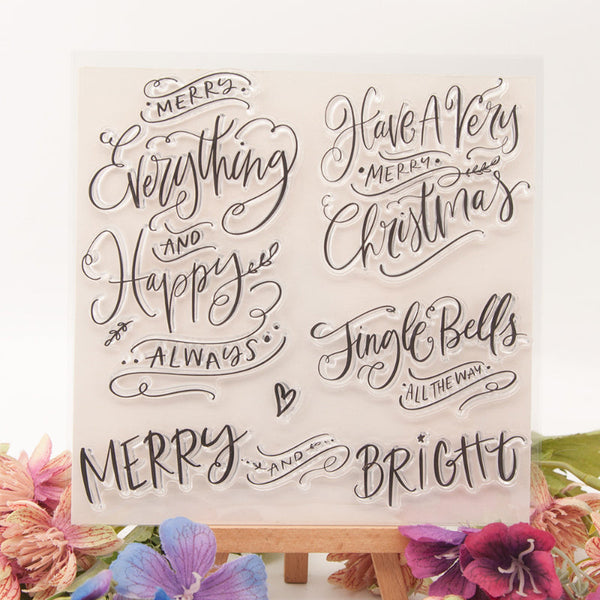 MERRY
Everything
AND
Happy
ALWAYS
Have A Very
MERRY
Christmas
Jingle Bells
ALL THE WAY
MERRY AND BRiGHt